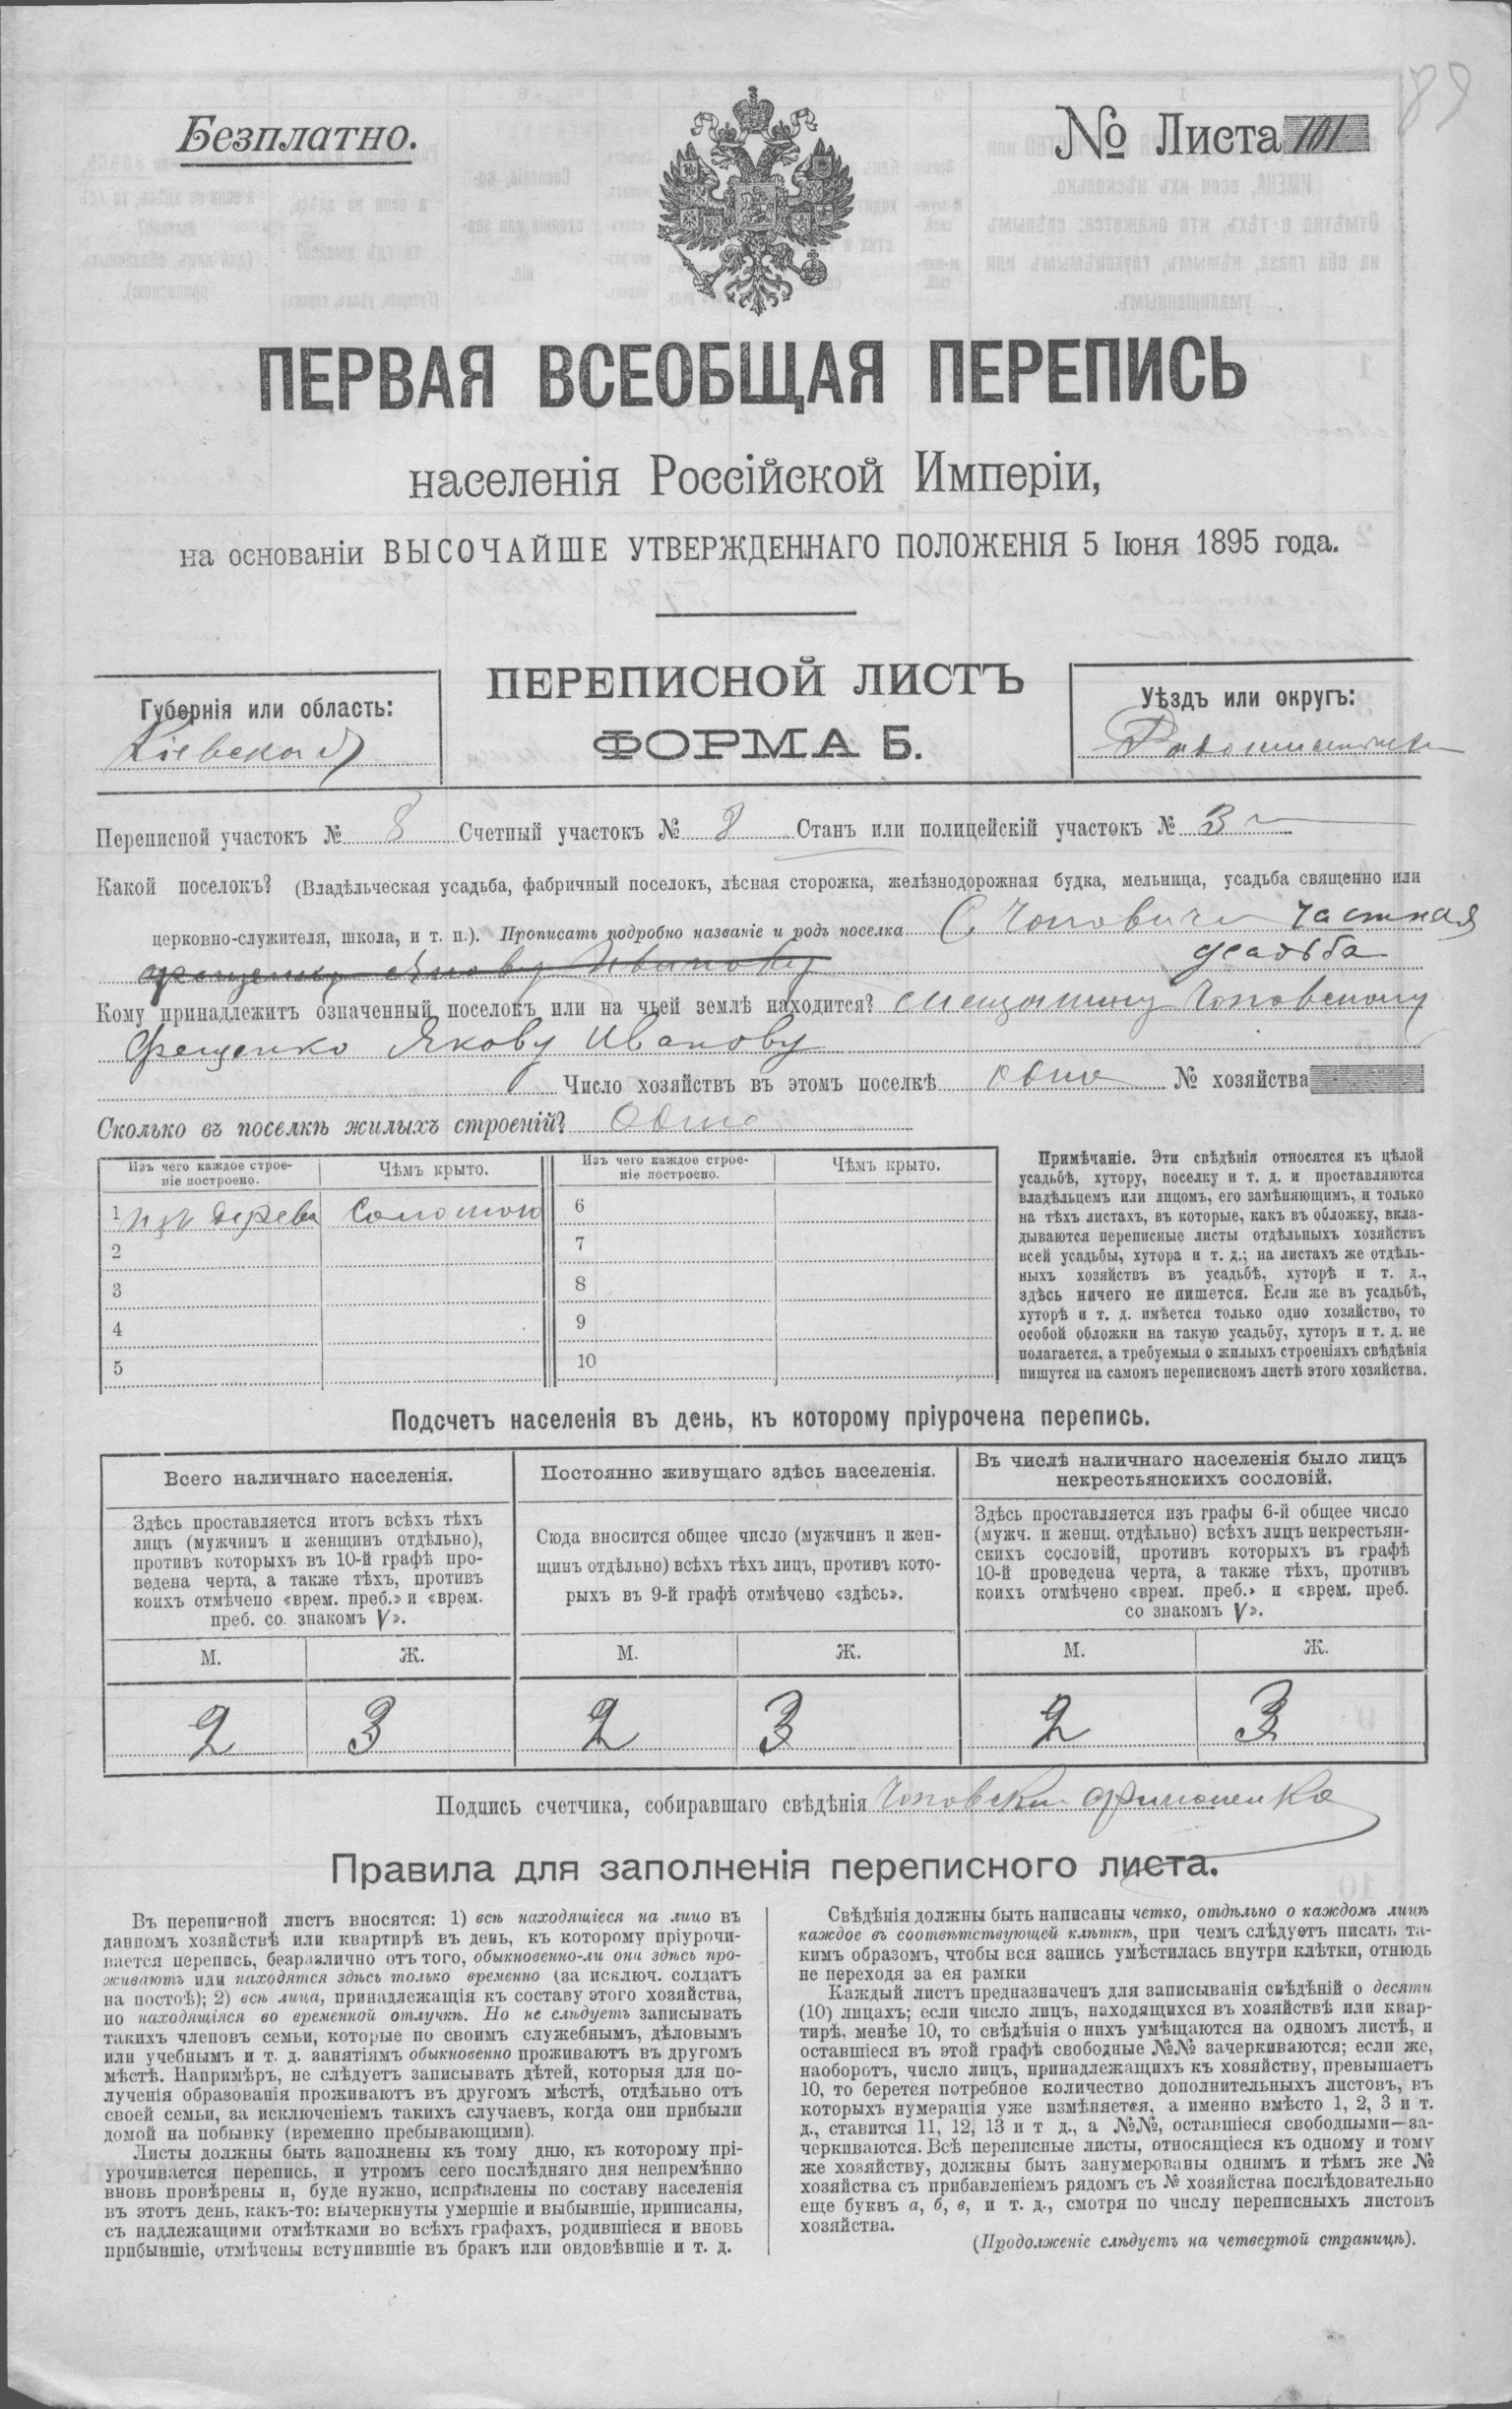 89
Безплатно.
№ Листа 101
ПЕРВАЯ ВСЕОБЩАЯ ПЕРЕПИСЬ
населенія Россійской Имперіи,
на основаніи ВЫСОЧАЙШЕ УТВЕРЖДЕННАГО ПОЛОЖЕНІЯ 5 Іюня 1895 года.
ПЕРЕПИСНОЙ ЛИСТЪ
ФОРМА Б.
Губернія или область:
Кіевская
Уѣздъ или округъ:
Радомысльскій
Переписной участокъ № 8 Счетный участокъ № 8 Станъ или полицейскій участокъ № 3
Какой поселокъ? (Владѣльческая усадьба, фабричный поселокъ, лѣсная сторожка, желѣзнодорожная будка, мельница, усадьба священно или
церковно-служителя, школа, и т. п.). Прописать подробно названіе и родъ поселка С Чоповичи частная
усадьба
Кому принадлежитъ означенный поселокъ или на чьей землѣ находится? мещанину Чоповскому
Фещенко Якову Иванову
Число хозяйствъ въ этомъ поселкѣ одно № хозяйства
Сколько въ поселкѣ жилыхъ строеній? Одно
Изъ чего каждое строе-
ніе построено.
Чѣмъ крыто.
Изъ чего каждое строе-
ніе построено.
Чѣмъ крыто.
1 изъ дерева Соломою 6
2 7
3 8
4 9
5 10
Примѣчаніе. Эти свѣдѣнія относятся къ цѣлой
усадьбѣ, хутору, поселку и т. д. и проставляются
владѣльцемъ или лицомъ, его замѣняющимъ, и только
на тѣхъ листахъ, въ которые, какъ въ обложку, вкла-
дываются переписные листы отдѣльныхъ хозяйствъ
всей усадьбы, хутора и т. д.; на листахъ же отдѣль-
ныхъ хозяйствъ въ усадьбѣ, хуторѣ и т. д.,
здѣсь ничего не пишется. Если же въ усадьбѣ,
хуторѣ и т. д. имѣется только одно хозяйство, то
особой обложки на такую усадьбу, хуторъ и т. д. не
полагается, а требуемыя о жилыхъ строеніяхъ свѣдѣнія
пишутся на самомъ переписномъ листѣ этого хозяйства.
Подсчетъ населенія въ день, къ которому пріурочена перепись.
Всего наличнаго населенія.
Здѣсь проставляется итогъ всѣхъ тѣхъ
лицъ (мужчинъ и женщинъ отдѣльно),
противъ которыхъ въ 10-й графѣ про-
ведена черта, а также тѣхъ, противъ
коихъ отмѣчено «врем. преб.» и «врем.
преб. со знакомъ V».
М. Ж.
2 3
Постоянно живущаго здѣсь населенія.
Сюда вносится общее число (мужчинъ и жен-
щинъ отдѣльно) всѣхъ тѣхъ лицъ, противъ кото-
рыхъ въ 9-й графѣ отмѣчено «здѣсь».
М. Ж.
2 3
Въ числѣ наличнаго населенія было лицъ
некрестьянскихъ сословій.
Здѣсь проставляется изъ графы 6-й общее число
(мужч. и женщ. отдѣльно) всѣхъ лицъ некрестьян-
скихъ сословій, противъ которыхъ въ графѣ
10-й проведена черта, а также тѣхъ, противъ
коихъ отмѣчено «врем. преб.» и «врем. преб.
со знакомъ V».
М. Ж.
2 3
Подпись счетчика, собиравшаго свѣдѣнія Чоповскій
Правила для заполненія переписного листа.
Въ переписной листъ вносятся: 1) всѣ находящіеся на лицо въ
данномъ хозяйствѣ или квартирѣ въ день, къ которому пріурочи-
вается перепись, безразлично отъ того, обыкновенно-ли они здѣсь про-
живаютъ или находятся здѣсь только временно (за исключ. солдатъ
на постоѣ); 2) всѣ лица, принадлежащія къ составу этого хозяйства,
но находящіяся во временной отлучкѣ. Но не слѣдуетъ записывать
такихъ членовъ семьи, которые по своимъ служебнымъ, дѣловымъ
или учебнымъ и т. д. занятіямъ обыкновенно проживаютъ въ другомъ
мѣстѣ. Напримѣръ, не слѣдуетъ записывать дѣтей, которыя для по-
лученія образованія проживаютъ въ другомъ мѣстѣ, отдѣльно отъ
своей семьи, за исключеніемъ такихъ случаевъ, когда они прибыли
домой на побывку (временно пребывающими).
Листы должны быть заполнены къ тому дню, къ которому прі-
урочивается перепись, и утромъ сего послѣдняго дня непремѣнно
вновь провѣрены и, буде нужно, исправлены по составу населенія
въ этотъ день, какъ-то: вычеркнуты умершіе и выбывшіе, приписаны,
съ надлежащими отмѣтками во всѣхъ графахъ, родившіеся и вновь
прибывшіе, отмѣчены вступившіе въ бракъ или овдовѣвшіе и т. д.
Свѣдѣнія должны быть написаны четко, отдѣльно о каждомъ лицѣ
каждое въ соотвѣтствующей клѣткѣ, при чемъ слѣдуетъ писать та-
кимъ образомъ, чтобы вся запись умѣстилась внутри клѣтки, отнюдь
не переходя за ея рамки
Каждый листъ предназначенъ для записыванія свѣдѣній о десяти
(10) лицахъ; если число лицъ, находящихся въ хозяйствѣ или квар-
тирѣ, менѣе 10, то свѣдѣнія о нихъ умѣщаются на одномъ листѣ, и
оставшіеся въ этой графѣ свободные №№ зачеркиваются; если же,
наоборотъ, число лицъ, принадлежащихъ къ хозяйству, превышаетъ
10, то берется потребное количество дополнительныхъ листовъ, въ
которыхъ нумерація уже измѣняется, а именно вмѣсто 1, 2, 3 и т.
д., ставится 11, 12, 13 и т д., а №№, оставшіеся свободными—за-
черкиваются. Всѣ переписные листы, относящіеся къ одному и тому
же хозяйству, должны быть занумерованы однимъ и тѣмъ же №
хозяйства съ прибавленіемъ рядомъ съ № хозяйства послѣдовательно
еще буквъ а, б, в, и т. д., смотря по числу переписныхъ листовъ
хозяйства.
(Продолженіе слѣдуетъ на четвертой страницѣ).